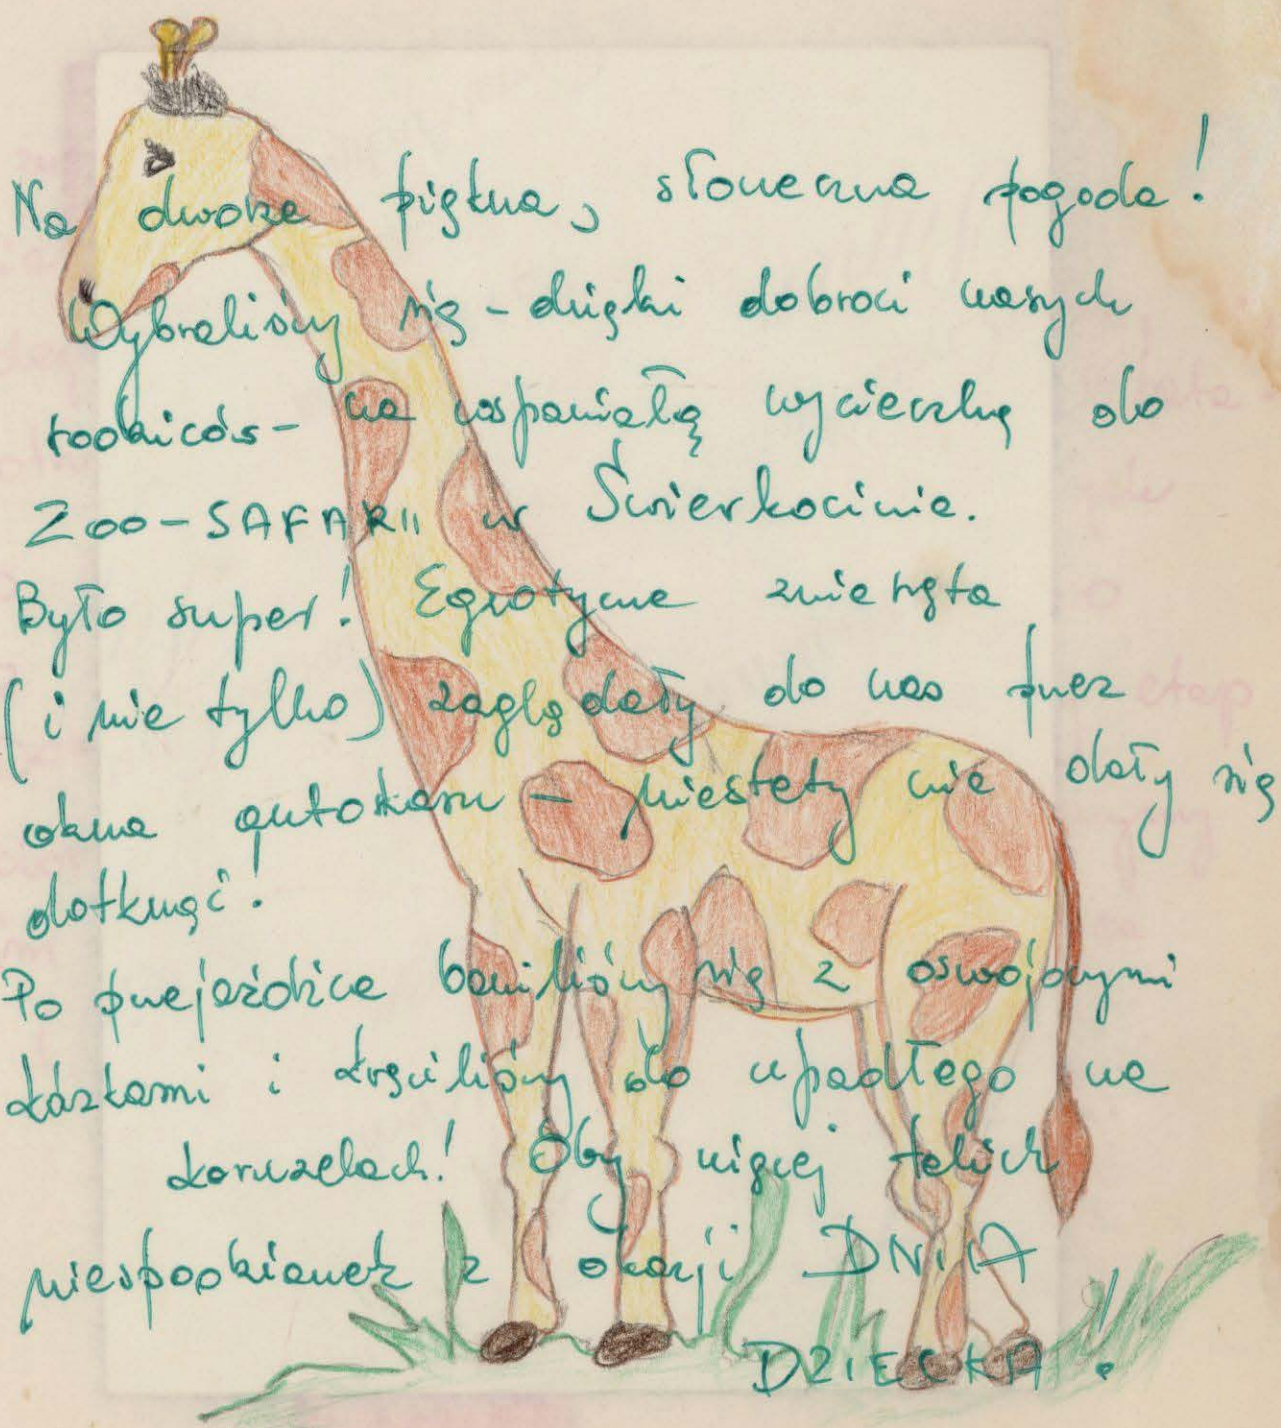 Na dworze piękna, słoneczna pogoda!
Wybraliśmy się - dzięki dobroci naszych
rodziców - na wspaniałą wycieczkę do
Zoo-SAFARII w Świerkocinie.
Było super! Egzotyczne zwierzęta
(i nie tylko) zaglądały do nas przez
okna autokaru - niestety nie dały się
dotknąć!
Po przejażdżce bawiliśmy się z oswojonymi
kózkami i kręciliśmy do upadłego na
karuzelach! Oby więcej takich
niespodzianek z okazji DNIA
DZIECKA!